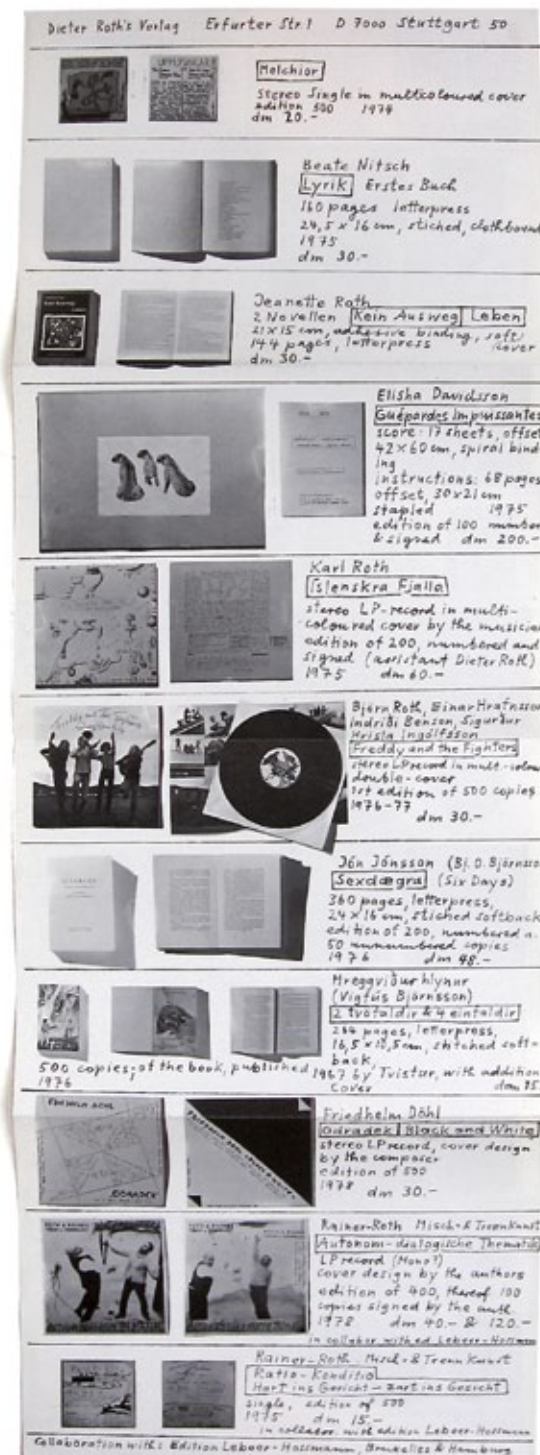 Dieter Roth's Verlag Erfurter Str. 1 D 7000 Stuttgart 50
Melchior
stereo Single in multicoloured cover
edition 500 1974
dm 20.-
Beate Nitsch
Lyrik Erstes Buch
160 pages letterpress
24,5 x 16 cm, stiched, clothbound
1975
dm 30.-
Jeanette Roth
2 Novellen Kein Ausweg Leben
21 x 15 cm, adhesive binding, soft
144 pages, letterpress cover
dm 30.-
Elisha Davidsson
Guépardes Impuissantes
score: 17 sheets, offset
42 x 60 cm, spiral bind-
ing
instructions: 68 pages
offset, 30 x 21 cm
stapled 1975
edition of 100 number
& signed dm 200.-
Karl Roth
Islenskra Fjalla
stereo LP-record in multi-
coloured cover by the musician
edition of 200, numbered and
signed (assistant Dieter Roth)
1975 dm 60.-
Freddy and the Fighters
Björn Roth, Einar Hrafnsson
Indriði Benson, Sigurður
Hrísla Ingólfsson
Freddy and the Fighters
stereo LP record in mult.-colour
double-cover
1st edition of 500 copies
1976-77
dm 30.-
Jón Jónsson (Bj. O. Björnsson
Sexdægra (Six Days)
360 pages, letterpress,
24 x 16 cm, stiched softback
edition of 200, numbered a.
50 unnumbered copies
1976 dm 48.-
Hreggviður hlynur
(Vigfús Björnsson)
2 tvöfaldir & 4 einfaldir
pages, letterpress,
stitched soft-
back,
500 copies; of the book, published 1967 by Tvistur, with addition
1976 Cover
FRIEDHELM DÖHL
ODRADEK
Friedhelm Döhl
Odradek Black and White
stereo LP record, cover design
by the composer
edition of 500
1978 dm 30.-
Rainer-Roth Misch- & Trennkunst
Autonom-dialogische Thematik
LP record (Mono?)
cover design by the authors
edition of 400, thereof 100
copies signed by the auth.
1978 dm 40.- & 120.-
in collabor. with ed. Lebeer-Hossmann
Rainer-Roth Misch- & Trennkunst
Ratio-Konditio
Hart ins Gericht - zart ins Gesicht
single, edition of 500
1975 dm 15.-
in collabor. with edition Lebeer-Hossmann
Collaboration with: Edition Lebeer-Hossmann, Bruxelles & Hamburg